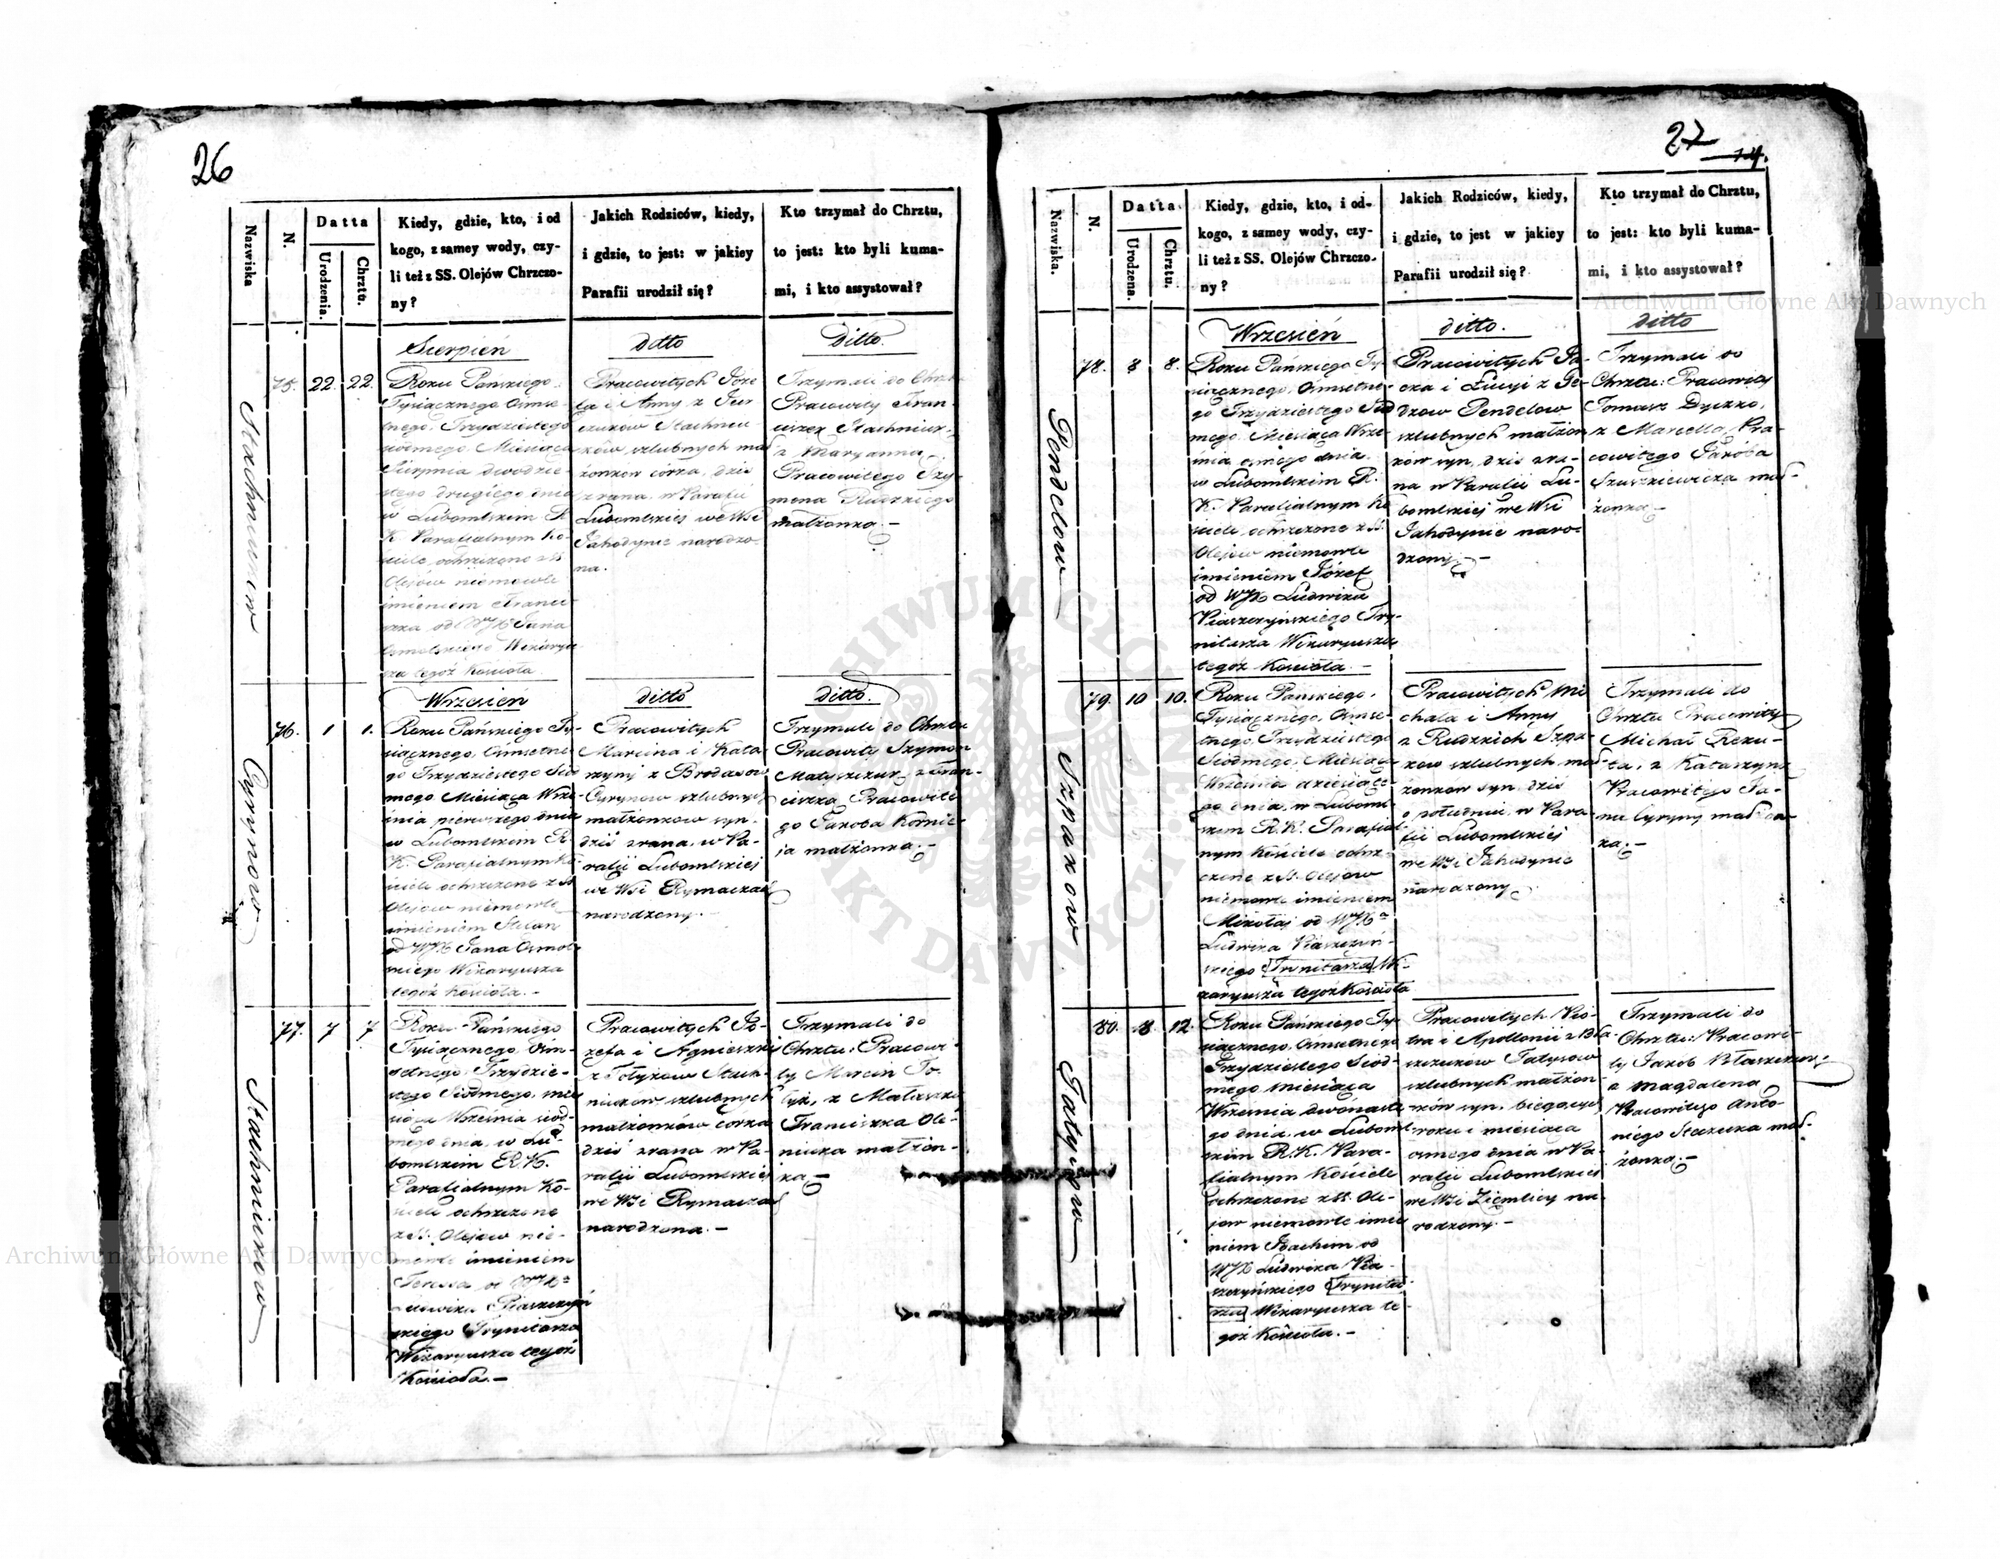 26
Nazwiska
N.
Datta
Urodzenia.
Chrztu.
Kiedy, gdzie, kto, i od
kogo, z samey wody, czy-
li też z SS. Olejów Chrzczo-
ny?
Jakich Rodziców, kiedy,
i gdzie, to jest: w jakiey
Parafii urodził się?
Kto trzymał do Chrztu,
to jest: kto byli kuma-
mi, i kto assystował?
Sierpień
ditto
Ditto.
75. 22. 22.
Roku Pańskiego
Tysiącznego Ośmse-
tnego, Trzydziestego
siódmego Miesiąca
Sierpnia dwudzie-
stego drugiego dnia
w Lubomlskim R.
K. Parafialnym Ko-
ściele, ochrzczone z SS
Olejów niemowle
imieniem Franci-
szka od WJX Jana
Wikaryu
sza tegoż Kościoła.
Pracowitych Józe
fa i Anny z Jur
czuków Stachniu
ków szlubnych mał
żonków córka, dziś
z rana w Parafii
Lubomlskiej we Wsi
Jahodynie narodzo
na.
Trzymali do Chrztu
Pracowity Fran-
ciszek Stachniuk
z Maryanną
Pracowitego Szy-
mona Rudzkiego
małżonką. -
Wrzesień
ditto
ditto.
76. 1 1.
Roku Pańskiego Ty-
siącznego, Ośmsetne
go Trzydziestego Siód
mego Miesiąca Wrze
śnia pierwszego dnia
w Lubomlskim R.
K. Parafialnym Ko
ściele ochrzczone z SS
Olejów niemowle
imieniem Stefan
od WJX Jana
Wikaryusza
tegoż Kościoła. -
Pracowitych
Marcina i Kata
rzyny z Brodasow
Cyrynow szlubnych
małżonków syn
dziś z rana, w Pa-
rafii Lubomlskiej
we Wsi Rymaczach
narodzony. -
Trzymali do Chrztu
Pracowity Szymon
Matyszczuk z Fran-
ciszką Pracowite
go Jakóba Kornie-
ja małżonką. -
77. 7 7
Roku Pańskiego
Tysiącznego Ośm-
setnego, Trzydzie-
stego Siódmego, mie
siąca Września siód-
mego dnia, w Lu-
bomlskim R.K.
Parafialnym Ko-
ściele ochrzczone
z SS. Olejów nie-
mowle imieniem
Teressa od WJX
Ludwika Piaszczyń
skiego Trynitarza
Wikaryusza tegoż
Kościoła. -
Pracowitych Jó-
zefa i Agnieszki
z Tołyżow Stach-
niuków szlubnych
małżonków córka
dziś z rana w Pa-
rafii Lubomlskiej
we Wsi Rymaczach
narodzona. -
Trzymali do
Chrztu: Pracowi-
ty Marcin To-
łyż, z Matiaszką
Franciszka Ole-
niuka małżon-
ką -
Stachniukow
Cyrynow
Stachniukow
27
14.
Nazwiska.
N.
Datta.
Urodzena.
Chrztu.
Kiedy, gdzie, kto, i od-
kogo, z samey wody, czy-
li też z SS. Olejów Chrzczo-
ny?
Jakich Rodziców, kiedy,
i gdzie, to jest w jakiey
Parafii urodził się?
Kto trzymał do Chrztu,
to jest: kto byli kuma-
mi, i kto assystował?
Wrzesień
ditto.
ditto
78. 8 8.
Roku Pańskiego Ty-
siącznego, Ośmsetne-
go Trzydziestego Siód
mego, Miesiąca Wrze-
śnia ósmego dnia
w Lubomlskim R.
K. Parafialnym Ko
ściele, ochrzczone z SS.
Olejów niemowle
imieniem Józef
od WJX Ludwika
Piaszczyńskiego Try-
nitarza Wikaryusza
tegoż Kościoła. -
Pracowitych Ja-
cka i Łucyi z Fe-
dzow Pendelow
szlubnych małżon
ków syn, dziś z ra-
na w Parafii Lu-
bomlskiej we Wsi
Jahodynie naro-
dzony -
Trzymali do
Chrztu: Pracowity
Tomasz Dyczko,
z Marcellą, Pra-
cowitego Jakóba
Szuszkiewicza mał-
żonką -
79. 10 10.
Roku Pańskiego,
Tysiącznego, Ośmse-
tnego, Trzydziestego
Siódmego, Miesiąca
Września dziesiąte
go dnia, w Luboml
skim R.K. Parafial
nym Kościele ochrz-
czone z SS. Olejów
niemowle imieniem
Mikołaj od WJX
Ludwika Piaszczyń-
skiego [Trynitarza] Wi-
karyusza tegoż Kościoła
Pracowitych Mi
chała i Anny
z Rudzkich Szpa-
kow szlubnych mał
żonków syn, dziś
o południu, w Para-
fii Lubomlskiej
we Wsi Jahodynie
narodzony
Trzymali do
Chrztu Pracowity
Michał Reku-
ta, z Katarzyną
Pracowitego Ja-
na Cyryny małżon-
ką. -
80. 8 12.
Roku Pańskiego Ty-
siącznego, Ośmsetnego
Trzydziestego Siód-
mego miesiąca
Września dwónaste
go dnia, w Luboml
skim R.K. Para-
fialnym Kościele
ochrzczone z SS. Ole-
jów niemowle imie
niem Joachim od
WJX Ludwika Pia-
szczyńskiego [Trynita
rza] Wikaryusza te-
goż Kościoła. -
Pracowitych Pio-
tra i Apollonii z Bła
szczuków Tatysow
szlubnych małżon-
ków syn, biegącego
roku i miesiąca
ósmego dnia w Pa-
rafii Lubomlskiej
we Wsi Ziemlicy na
rodzony -
Trzymali do
Chrztu: Pracowi-
ty Jakób Błaszczuk
z Magdaleną
Pracowitego Anto-
niego mał-
żonką. -
Pendelow
Szpakow
Tatysow
Archiwum Główne Akt Dawnych
Archiwum Główne Akt Dawnych
ARCHIWUM GŁÓWNE AKT DAWNYCH